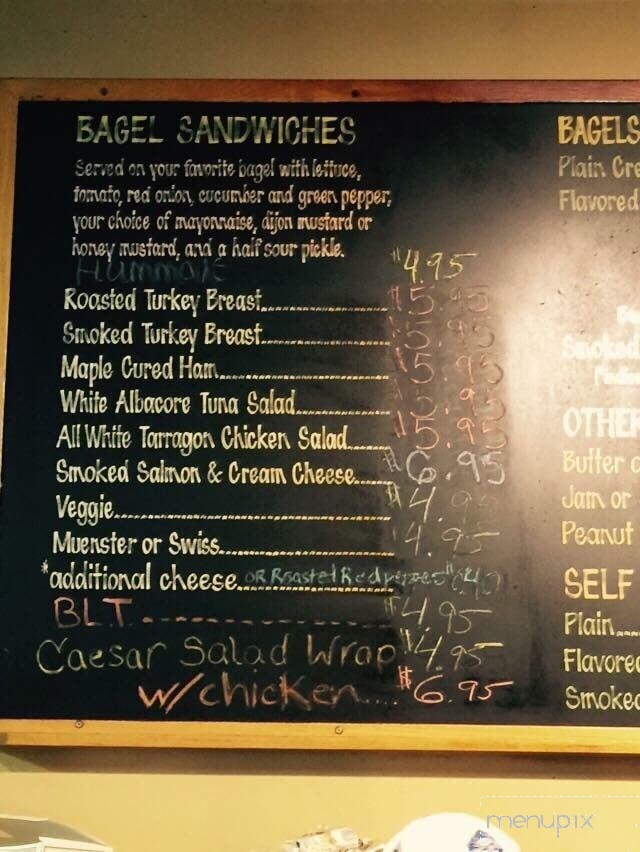 BAGEL SANDWICHES
Served on your favorite bagel with lettuce,
tomato, red onion, cucumber and green pepper,
your choice of mayonnaise, dijon mustard or
honey mustard, and a half sour pickle.
$4.95
Roasted Turkey Breast $5.95
Smoked Turkey Breast $5.95
Maple Cured Ham $5.95
White Albacore Tuna Salad $5.95
All White Tarragon Chicken Salad $5.95
Smoked Salmon & Cream Cheese $6.95
Veggie $4.95
Muenster or Swiss $4.95
*additional cheese OR Roasted Red
BLT $4.95
Caesar Salad Wrap $4.95
w/chicken $6.95
BAGELS
Plain Cre
Flavored
Smoked
OTHER
Butter
Jam or
Peanut
SELF
Plain
Flavored
Smoked
menupix